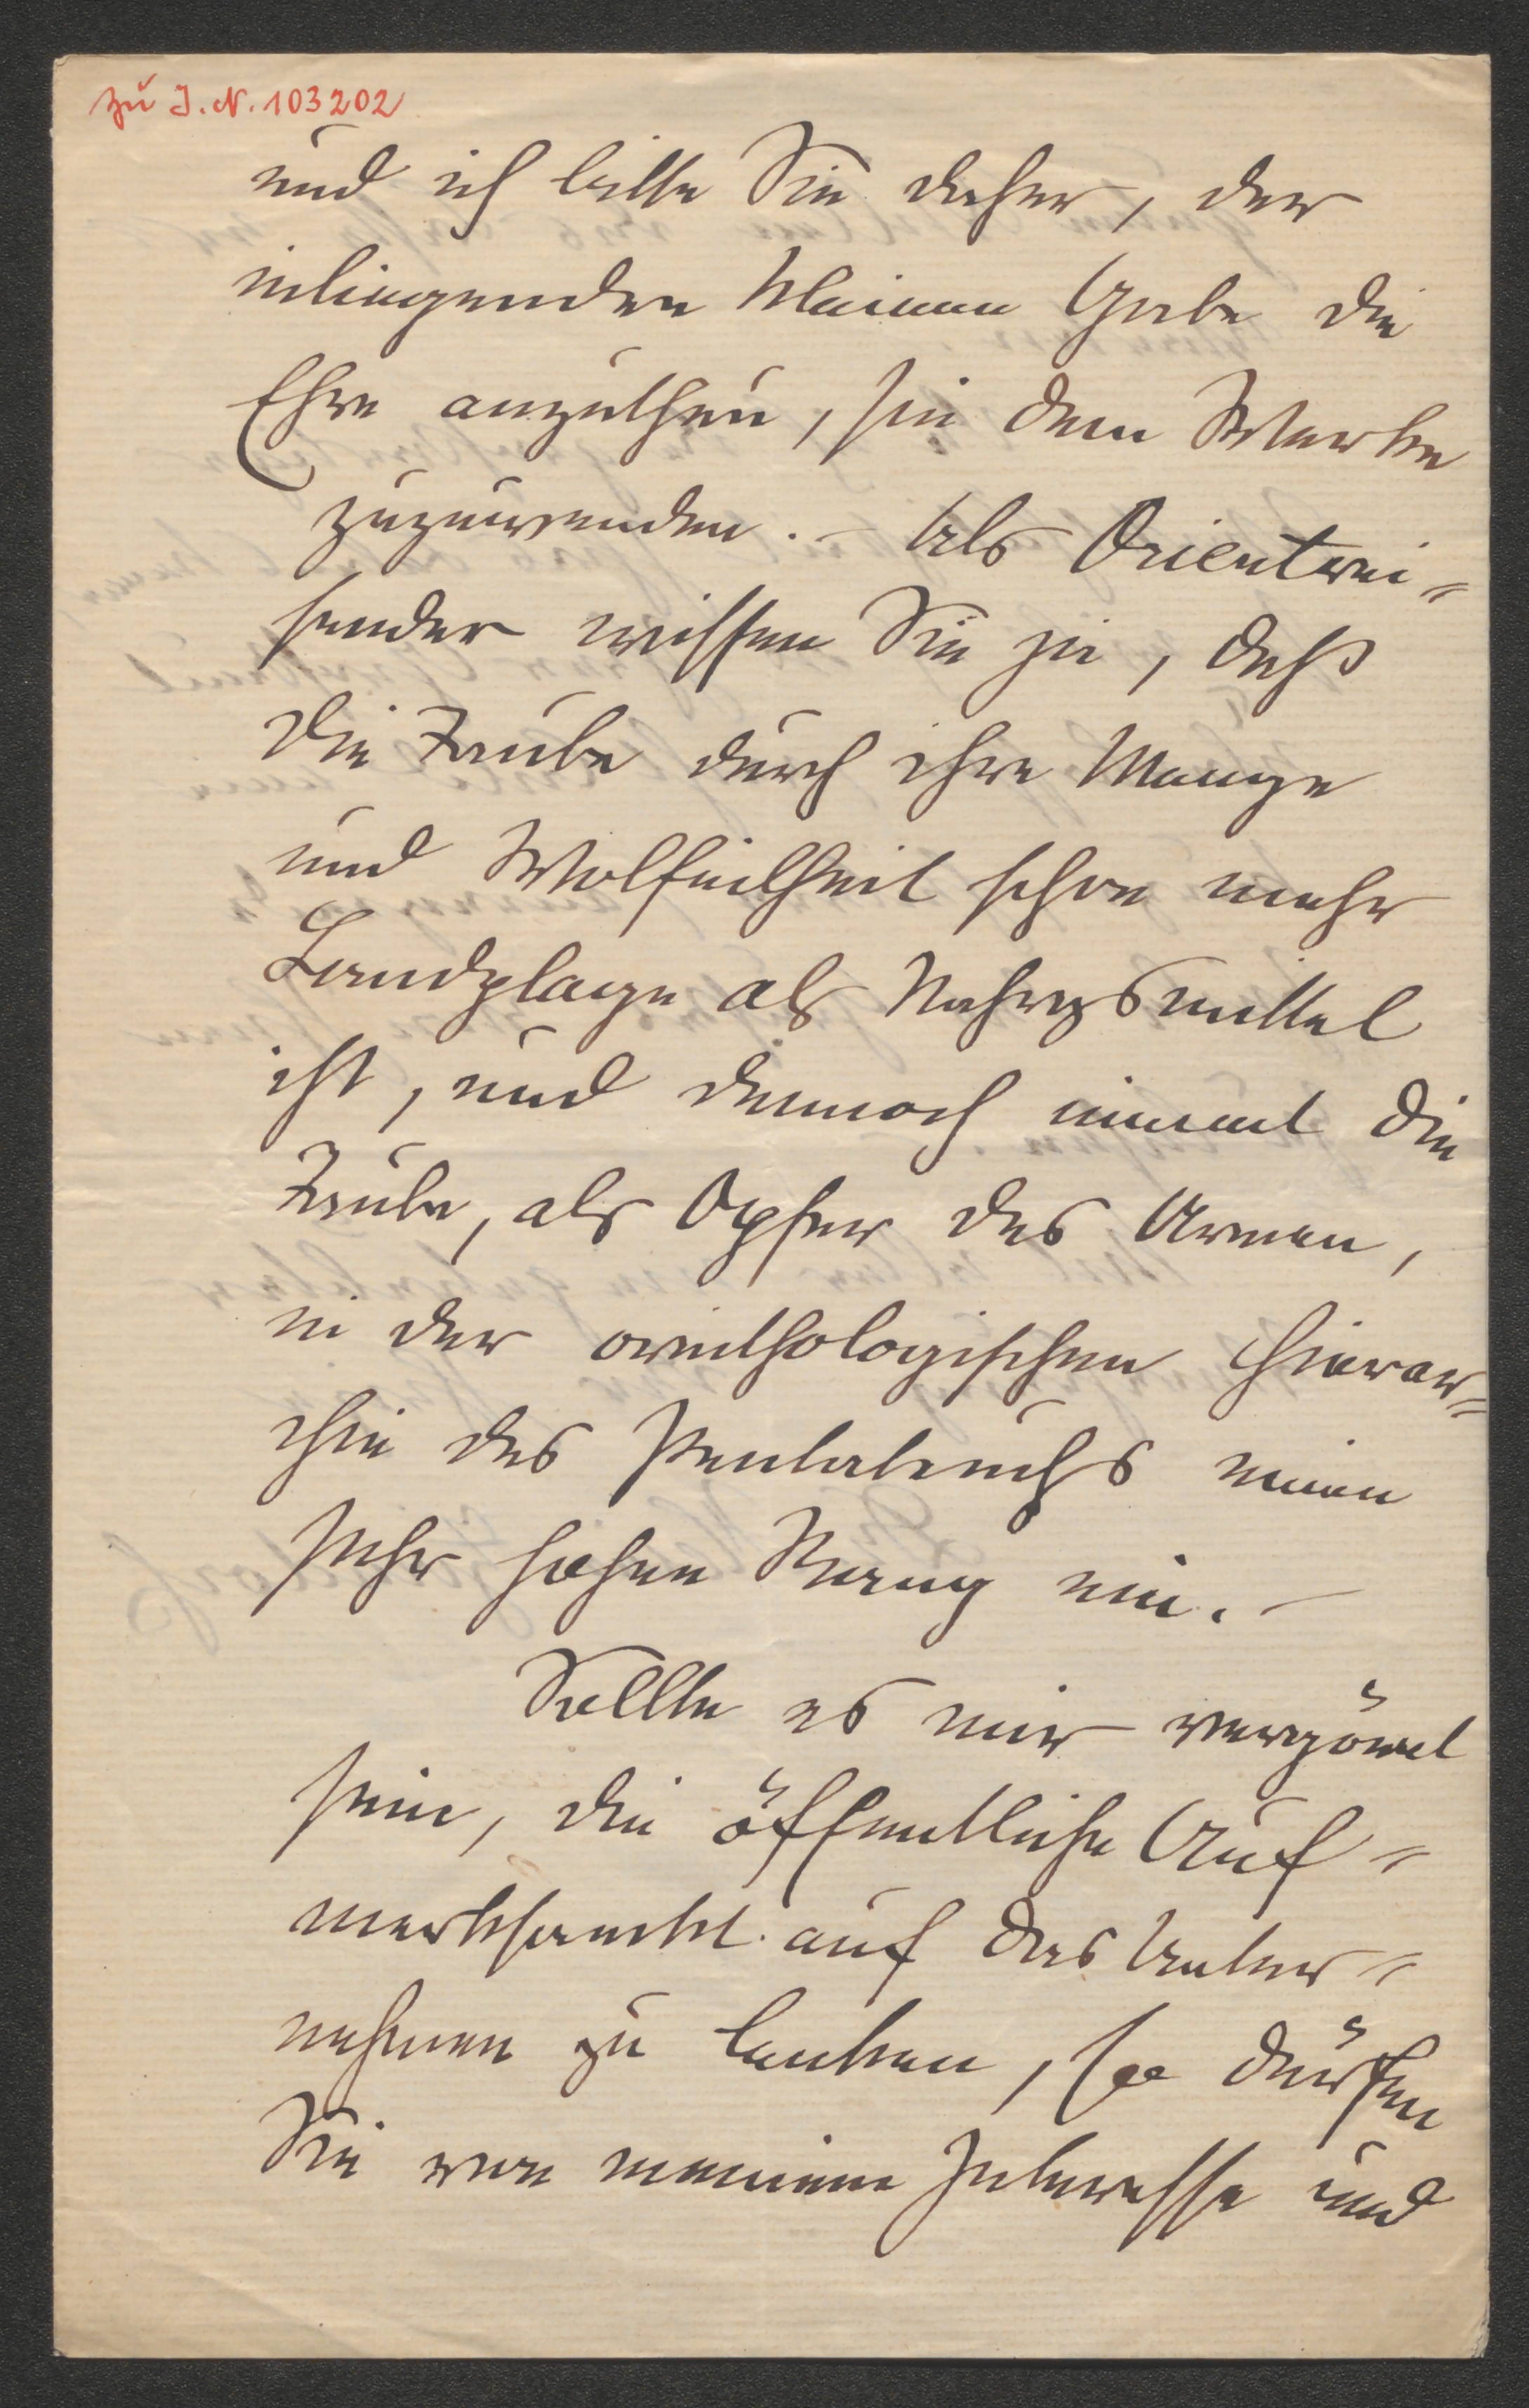 zu J. N. 103202
und ich bitte Sie daher, der
inliegenden kleinen Gabe die
Ehre anzuthun, sie dem Werke
zuzuwenden. – Als Orientrei=
sender wissen Sie ja, daß
die Taube durch ihre Menge
und Wolfeilheit schon mehr
Landplage als Nahrgsmittel
ist, und dennoch nimmt die
Taube, als Opfer des Armen,
in der ornithologischen Hierar=
chie des Pentateuchs einen
sehr hohen Rang ein. –
Sollte es mir vergönnt
sein, die öffentliche Auf=
merksamkt. auf das Unter=
nehmen zu lenken, so dürfen
Sie von meinem Interesse und